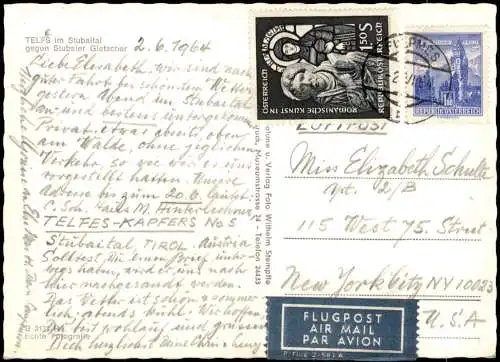 TELFS im Stubaital
gegen Stubaier Gletscher
2.6.1964
Liebe Elisabeth, wir sind nach
guter Fahrt bei schönstem Wetter
gestern Abend im Stubaital
an und bestens untergekommen
Privat, etwas abseits, oben
am Walde, ohne jeglichen
Verkehr, so wie wir es uns
vorgestellt hatten. Unsere
Adresse bis zum 20.6. lautet:
C. Sch. Haus M.
TELFES-KAPFERS No 5
Stubaital, TIROL Austria
Solltest Du einen Brief unter-
wegs haben, wird er uns nach
hier nachgesandt werden.
Das Wetter ist schön u. sommer-
lich, abends kühl. Wir hoffen,
Dich wohlauf und grüssen
Dich herzlichst
Echte Fotografie
u. Verlag Foto Wilhelm Stempfle
Museumstrasse 24 - Telefon 24433
ROMANISCHE KUNST IN ÖSTERREICH
REPUBLIK ÖSTERREICH
1.50 S
REPUBLIK ÖSTERREICH
LUFTPOST
Miss Elizabeth Schulte
Apt. 2/B
115 West 75. Street
New York City NY 10023
U.S.A
FLUGPOST
AIR MAIL
PAR AVION